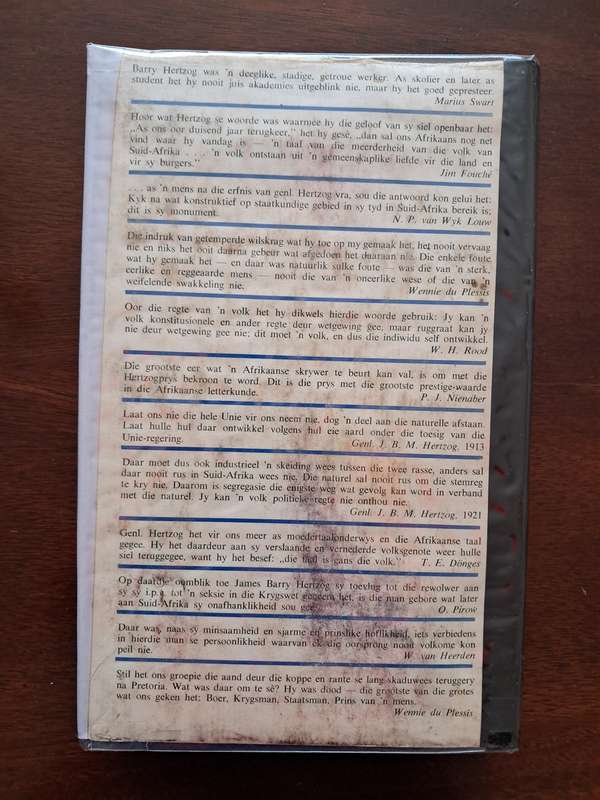 Barry Hertzog was 'n deeglike, stadige, getroue werker. As skolier en later as
student het hy nooit juis akademies uitgeblink nie, maar hy het goed gepresteer.
Marius Swart
Hoor wat Hertzog se woorde was waarmee hy die geloof van sy siel openbaar het:
„As ons oor duisend jaar terugkeer,” het hy gesê, „dan sal ons Afrikaans nog net
vind waar hy vandag is — 'n taal van die meerderheid van die volk van
Suid-Afrika . . . 'n volk ontstaan uit 'n gemeenskaplike liefde vir die land en
vir sy burgers.”
Jim Fouché
. . . as 'n mens na die erfnis van genl. Hertzog vra, sou die antwoord kon gelui het:
Kyk na wat konstruktief op staatkundige gebied in sy tyd in Suid-Afrika bereik is;
dit is sy monument.
N. P. van Wyk Louw
Die indruk van getemperde wilskrag wat hy toe op my gemaak het, het nooit vervaag
nie en niks het ooit daarna gebeur wat afgedoen het daaraan nie. Die enkele foute
wat hy gemaak het — en daar was natuurlik sulke foute — was die van 'n sterk,
eerlike en reggeaarde mens — nooit die van 'n oneerlike wese of die van 'n
weifelende swakkeling nie.
Wennie du Plessis
Oor die regte van 'n volk het hy dikwels hierdie woorde gebruik: Jy kan 'n
volk konstitusionele en ander regte deur wetgewing gee, maar ruggraat kan jy
nie deur wetgewing gee nie; dit moet 'n volk, en dus die individu self ontwikkel.
W. H. Rood
Die grootste eer wat 'n Afrikaanse skrywer te beurt kan val, is om met die
Hertzogprys bekroon te word. Dit is die prys met die grootste prestige-waarde
in die Afrikaanse letterkunde.
P. J. Nienaber
Laat ons nie die hele Unie vir ons neem nie, dog 'n deel aan die naturelle afstaan.
Laat hulle hul daar ontwikkel volgens hul eie aard onder die toesig van die
Unie-regering.
Genl. J. B. M. Hertzog, 1913
Daar moet dus ook industrieel 'n skeiding wees tussen die twee rasse, anders sal
daar nooit rus in Suid-Afrika wees nie. Die naturel sal nooit rus om die stemreg
te kry nie. Daarom is segregasie die enigste weg wat gevolg kan word in verband
met die naturel. Jy kan 'n volk politieke regte nie onthou nie.
Genl. J. B. M. Hertzog, 1921
Genl. Hertzog het vir ons meer as moedertaalonderwys en die Afrikaanse taal
gegee. Hy het daardeur aan sy verslaande en vernederde volksgenote weer hulle
siel teruggegee, want hy het besef: „die taal is gans die volk.”
T. E. Dönges
Op daardie oomblik toe James Barry Hertzog sy toevlug tot die rewolwer aan
sy sy i.p.v. tot 'n seksie in die Krygswet geneem het, is die man gebore wat later
aan Suid-Afrika sy onafhanklikheid sou gee.
O. Pirow
Daar was, naas sy minsaamheid en sjarme en prinslike hoflikheid, iets verbiedens
in hierdie man se persoonlikheid waarvan ek die oorsprong nooit volkome kon
peil nie.
W. van Heerden
Stil het ons groepie die aand deur die koppe en rante se lang skaduwees teruggery
na Pretoria. Wat was daar om te sê? Hy was dood — die grootste van die grotes
wat ons geken het: Boer, Krygsman, Staatsman, Prins van 'n mens.
Wennie du Plessis